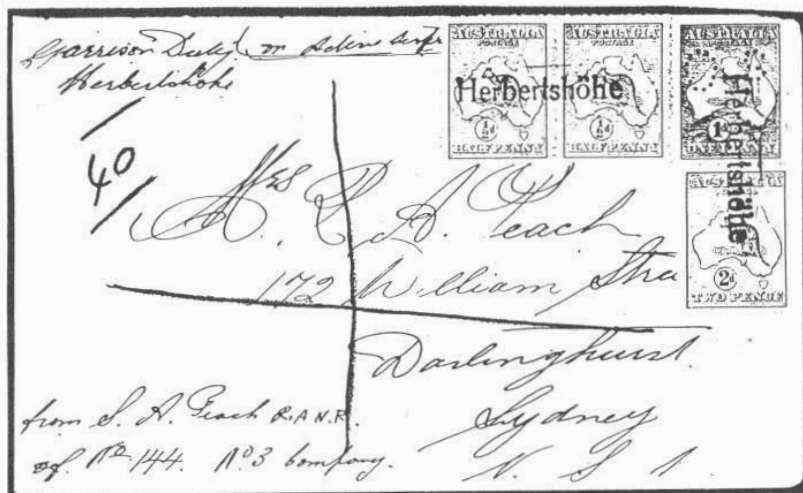 Garrison Duty on Active Service
Herbertshöhe
40
AUSTRALIA
POSTAGE
½d
HALFPENNY
AUSTRALIA
POSTAGE
½d
HALFPENNY
AUSTRALIA
1d
ONE PENNY
Herbertshöhe
Herbertshöhe
AUSTRALIA
2d
TWO PENCE
Mrs. A. Peach
172 William
Darlinghurst
Sydney
N. S
from S. A. Peach R.A.N.R.
of. No 144. No 3 Company.